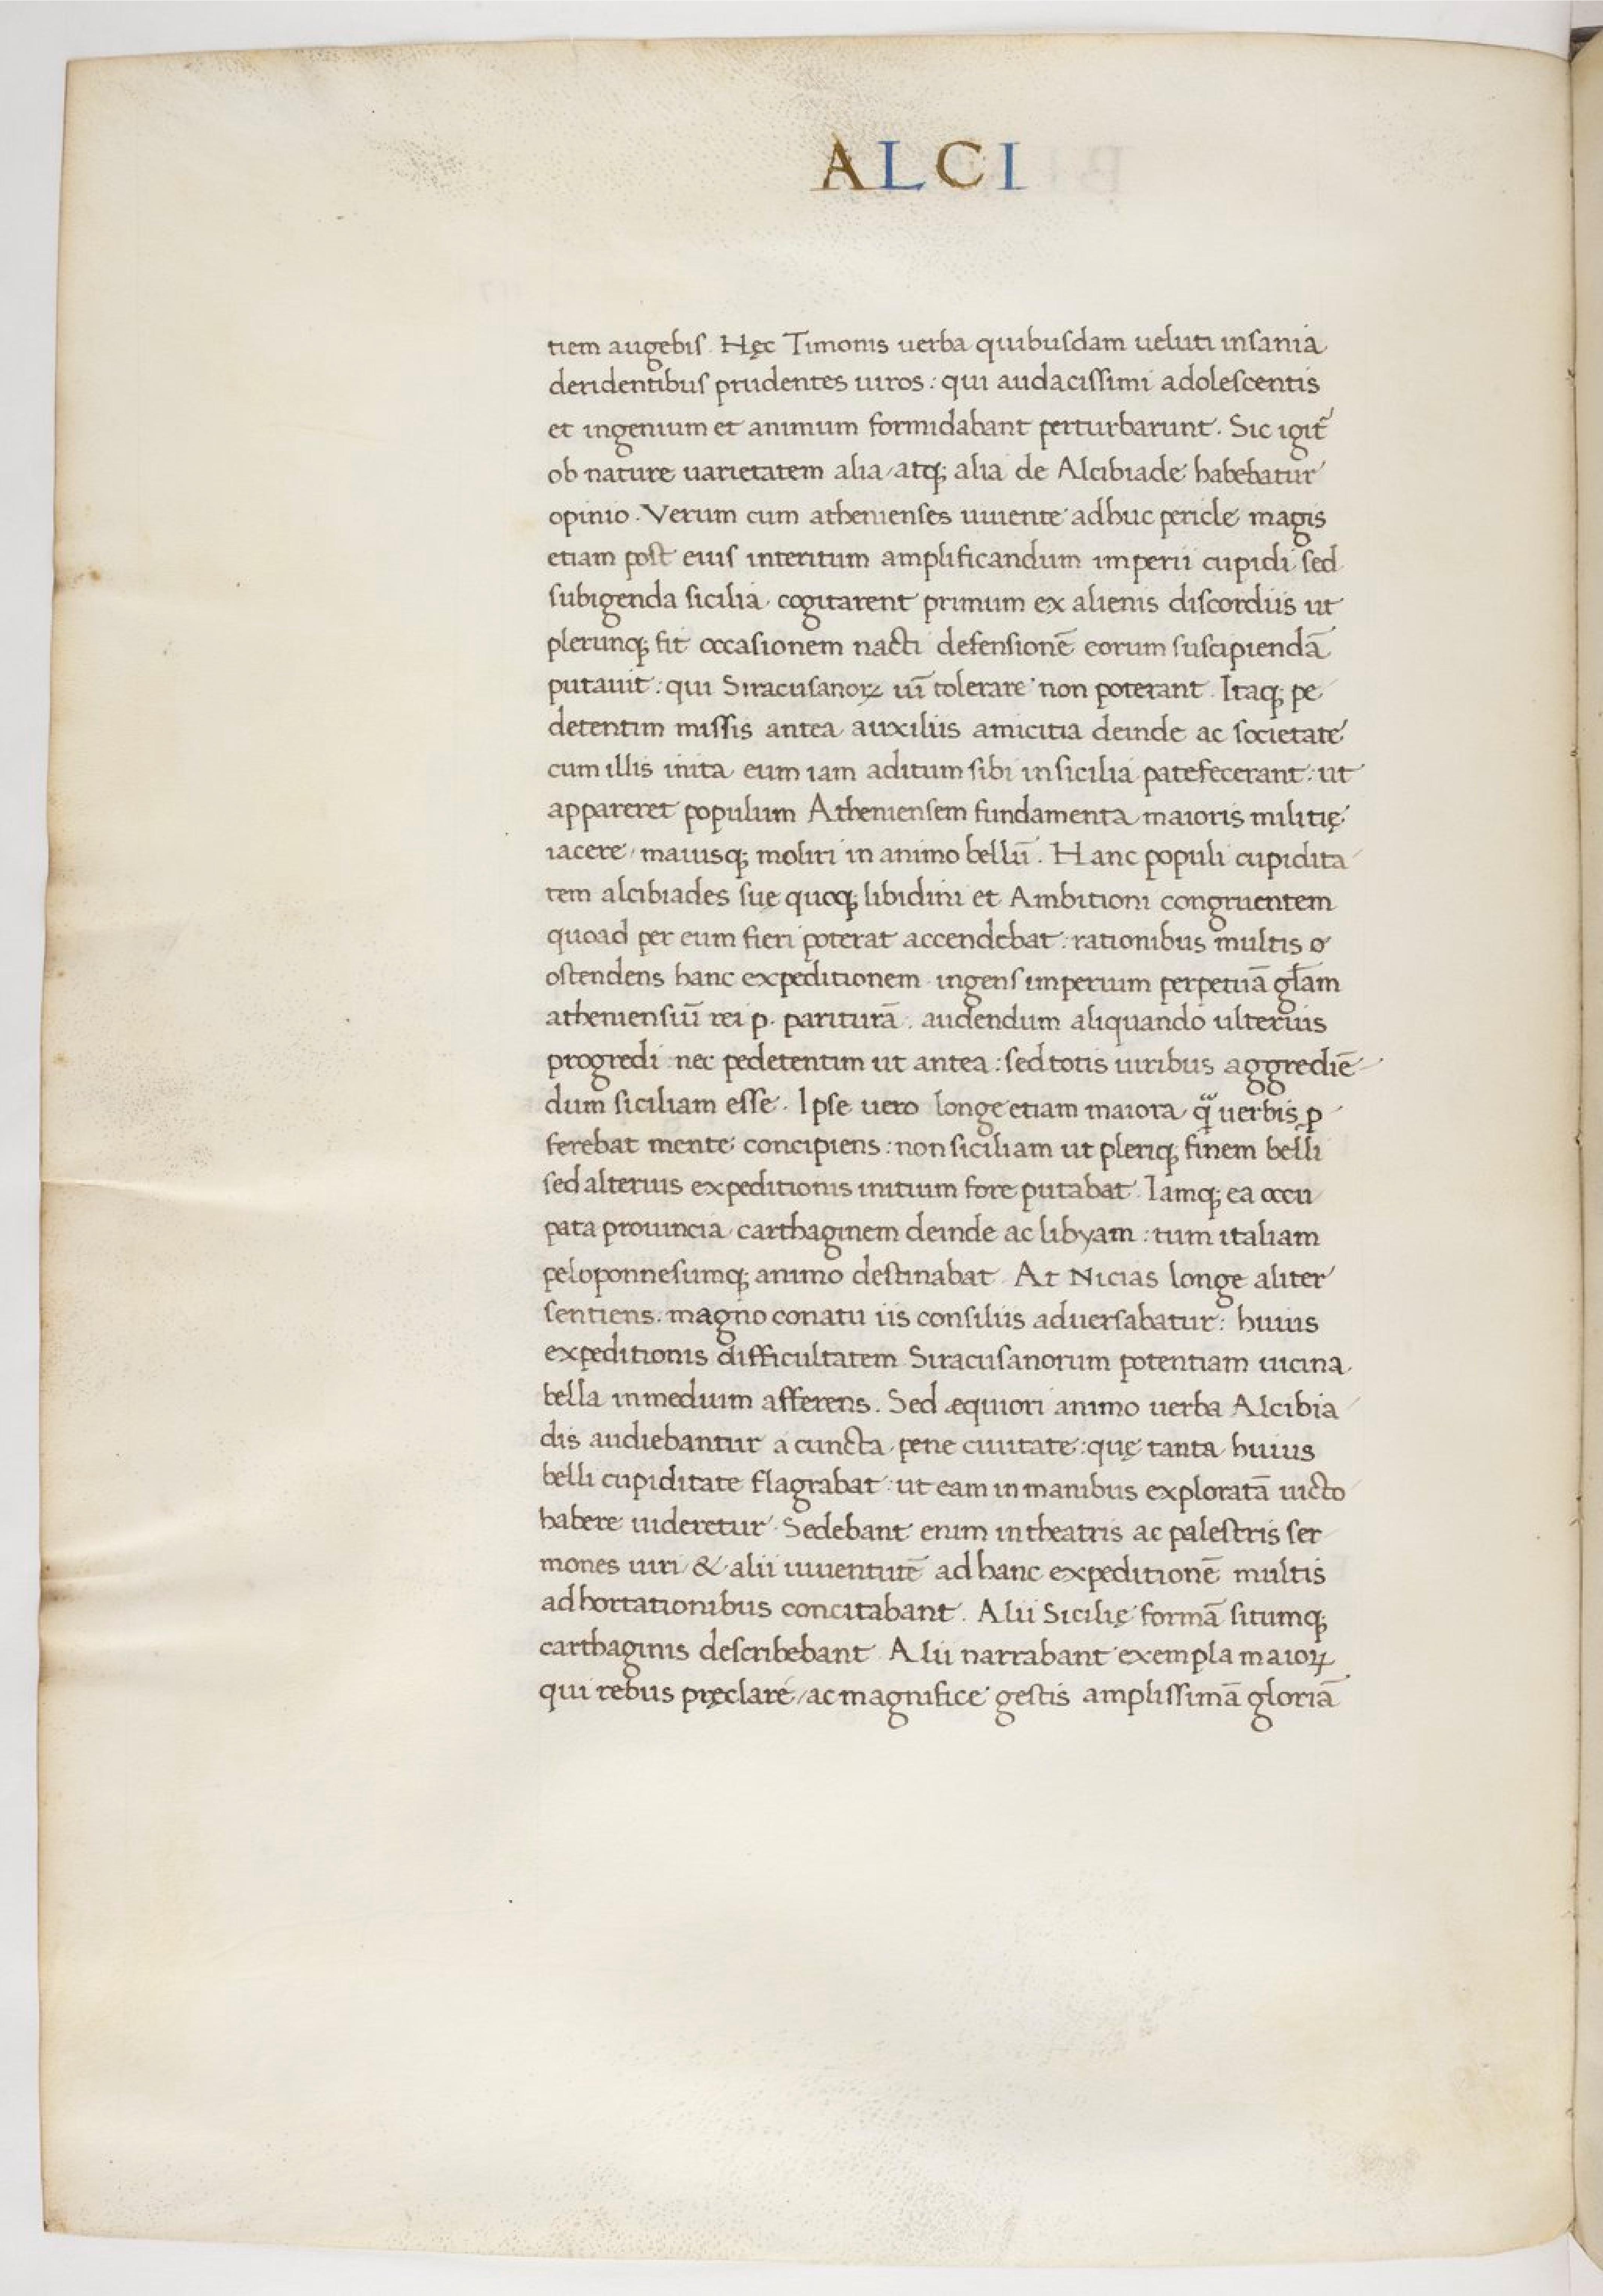 ALCI
tiem augebiſ. Hęc Timonis uerba quibuſdam ueluti inſania
deridentibuſ prudentes uiros: qui audaciſſimi adoleſcentis
et ingenium et animum formidabant perturbarunt. Sic igit̃
ob nature uarietatem alia / atq; alia de Alcibiade habebatur
opinio. Verum cum athenienſes uiuente adhuc pericle magis
etiam poſt eius interitum amplificandum imperii cupidi ſed
ſubigenda ſicilia cogitarent primum ex alienis diſcordiis ut
plerunq; fit occasionem nacti defensionē eorum ſuſcipiendā
putauit: qui Siracuſanoꝝ uī tolerare non poterant. Itaq; pe
detentim miſſis antea auxiliis amicitia deinde ac ſocietate
cum illis inita eum iam aditum ſibi in ſicilia patefecerant: ut
appareret populum Athenienſem fundamenta maioris militię
iacere / maiusq; moliri in animo bellū. Hanc populi cupidita
tem alcibiades ſuę quoq; libidini et Ambitioni congruentem
quoad per eum fieri poterat accendebat: rationibus multis o
oſtendens hanc expeditionem ingenſ imperium perpetuā gl̄am
athenienſiū rei p. pariturā. audendum aliquando ulterius
progredi nec pedetentim ut antea: ſed totis uiribus aggrediē
dum ſiciliam eſſe. Ipse uero longe etiam maiora q̃ uerbis ꝓ
ferebat mente concipiens: non ſiciliam ut pleriq; finem belli
ſed alterius expeditionis initium fore putabat. Iamq; ea occu
pata prouincia carthaginem deinde ac libyam: tum italiam
peloponneſumq; animo deſtinabat. At Nicias longe aliter
ſentiens. magno conatu iis conſiliis aduerſabatur: huius
expeditionis difficultatem Siracuſanorum potentiam uicina
bella in medium afferens. Sed æquiori animo uerba Alcibia
dis audiebantur a cuncta pene ciuitate: quę tanta huius
belli cupiditate flagrabat: ut eam in manibus exploratā uicto
habere uideretur. Sedebant enim in theatris ac paleſtris ſer
mones uiri & alii iuuentutē ad hanc expeditionē multis
adhortationibus concitabant. Alii Sicilię formā ſitumq;
carthaginis deſcribebant. Alii narrabant exempla maioꝝ
qui rebus pręclare / ac magnifice geſtis ampliſſimā gloriā